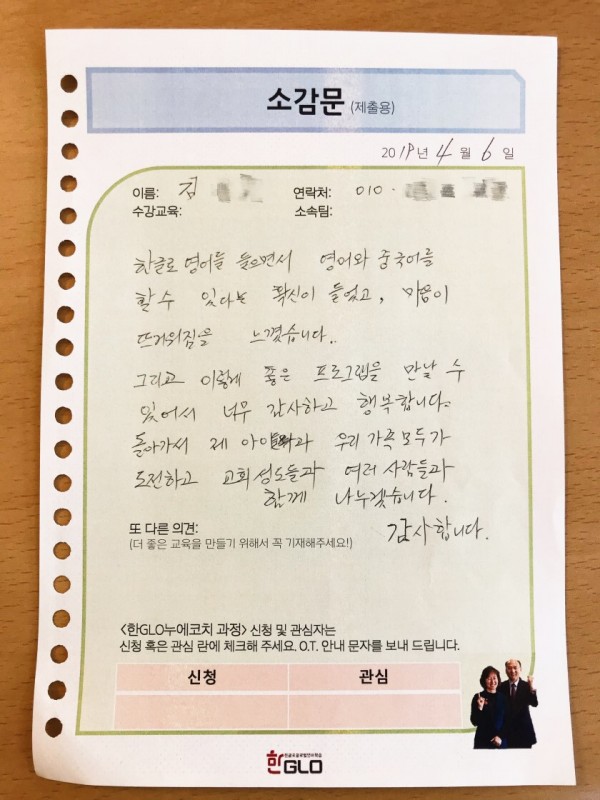 소감문 (제출용)
2019년 4월 6일
이름: 김 연락처: 010 -
수강교육: 소속팀:
한글로 영어를 들으면서 영어와 중국어를
할 수 있다는 확신이 들었고, 마음이
뜨거워짐을 느꼈습니다..
그리고 이렇게 좋은 프로그램을 만날 수
있어서 너무 감사하고 행복합니다.
돌아가서 제 아이들과 우리 가족 모두가
도전하고 교회 성도들과 여러 사람들과
함께 나누겠습니다.
감사합니다.
또 다른 의견:
(더 좋은 교육을 만들기 위해서 꼭 기재해주세요!)
<한GLO누에코치 과정> 신청 및 관심자는
신청 혹은 관심 란에 체크해 주세요. O.T. 안내 문자를 보내 드립니다.
신청 관심
한GLO